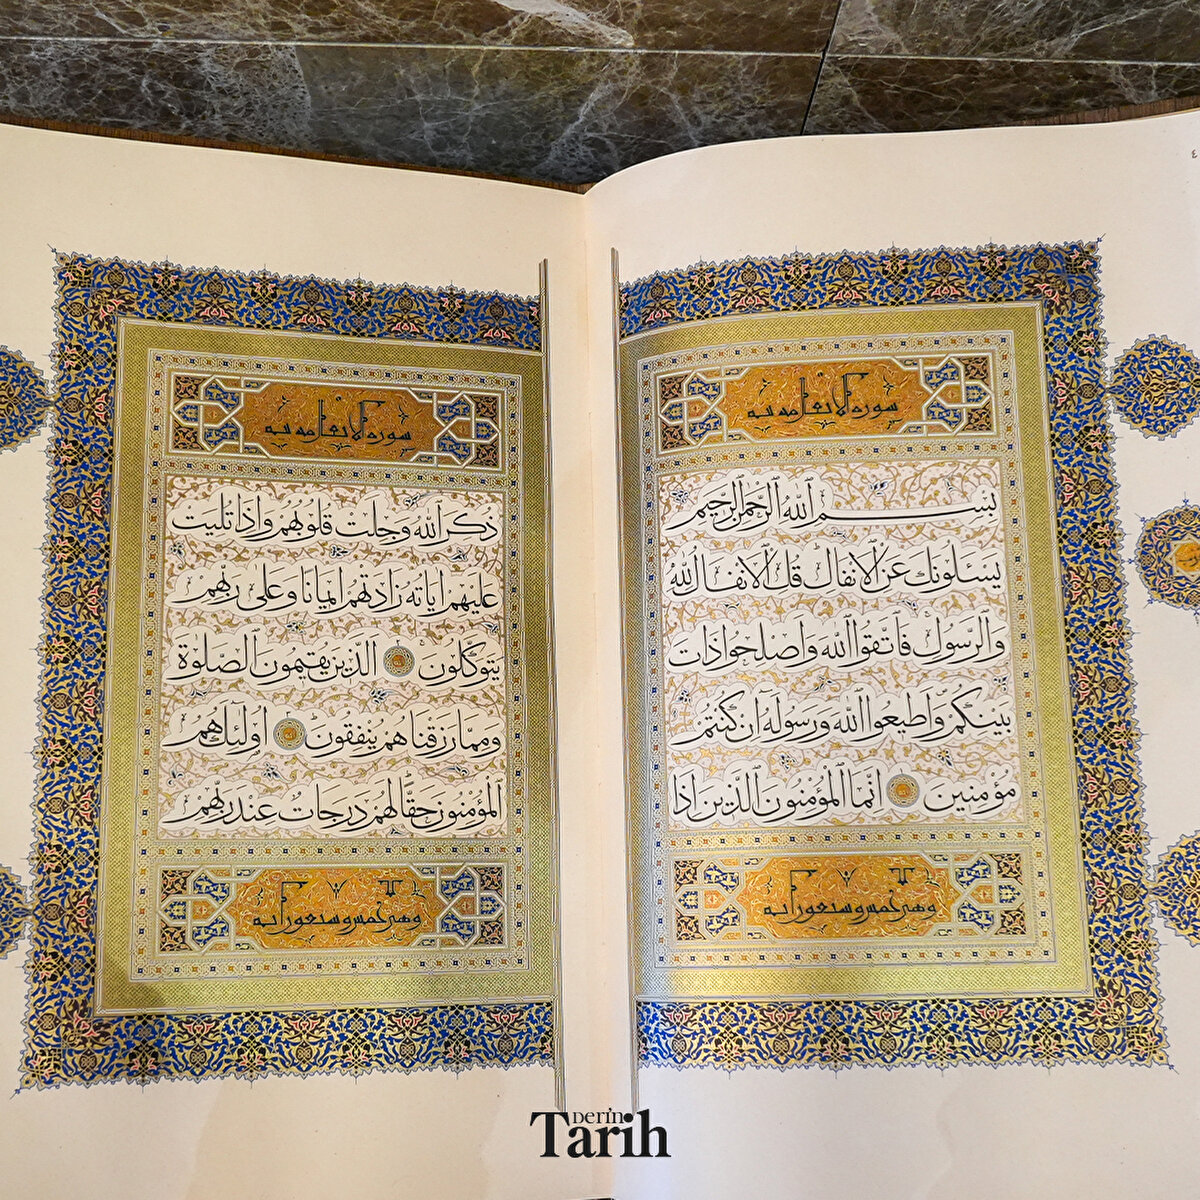 ٤
سورة الانفال مدنية
بسم الله الرحمن الرحيم
يسئلونك عن الانفال قل الانفال لله
والرسول فاتقوا الله واصلحوا ذات
بينكم واطيعوا الله ورسوله ان كنتم
مؤمنين انما المؤمنون الذين اذا
وهي خمس وسبعون آية
سورة الانفال مدنية
ذكر الله وجلت قلوبهم واذا تليت
عليهم اياته زادتهم ايمانا وعلى ربهم
يتوكلون الذين يقيمون الصلوة
ومما رزقناهم ينفقون اولئك هم
المؤمنون حقا لهم درجات عند ربهم
وهي خمس وسبعون آية
DERİN
Tarih